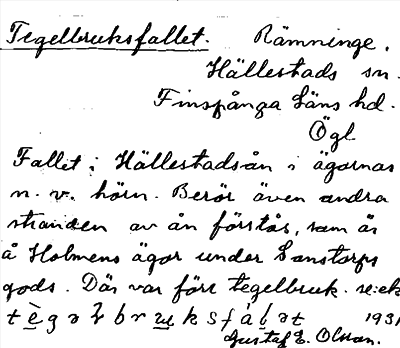 Tegelbruksfallet. Rämninge.
Hällestads sn.
Finspånga Läns hd.
Ögl.
Fallet i Hällestadsån i ägornas
n. v. hörn. Berör även andra
stranden av ån förstås, som är
å Holmens ägor under Sanstorps
gods. Där var förr tegelbruk. se:ek
1931
Gustaf E. Olsson.